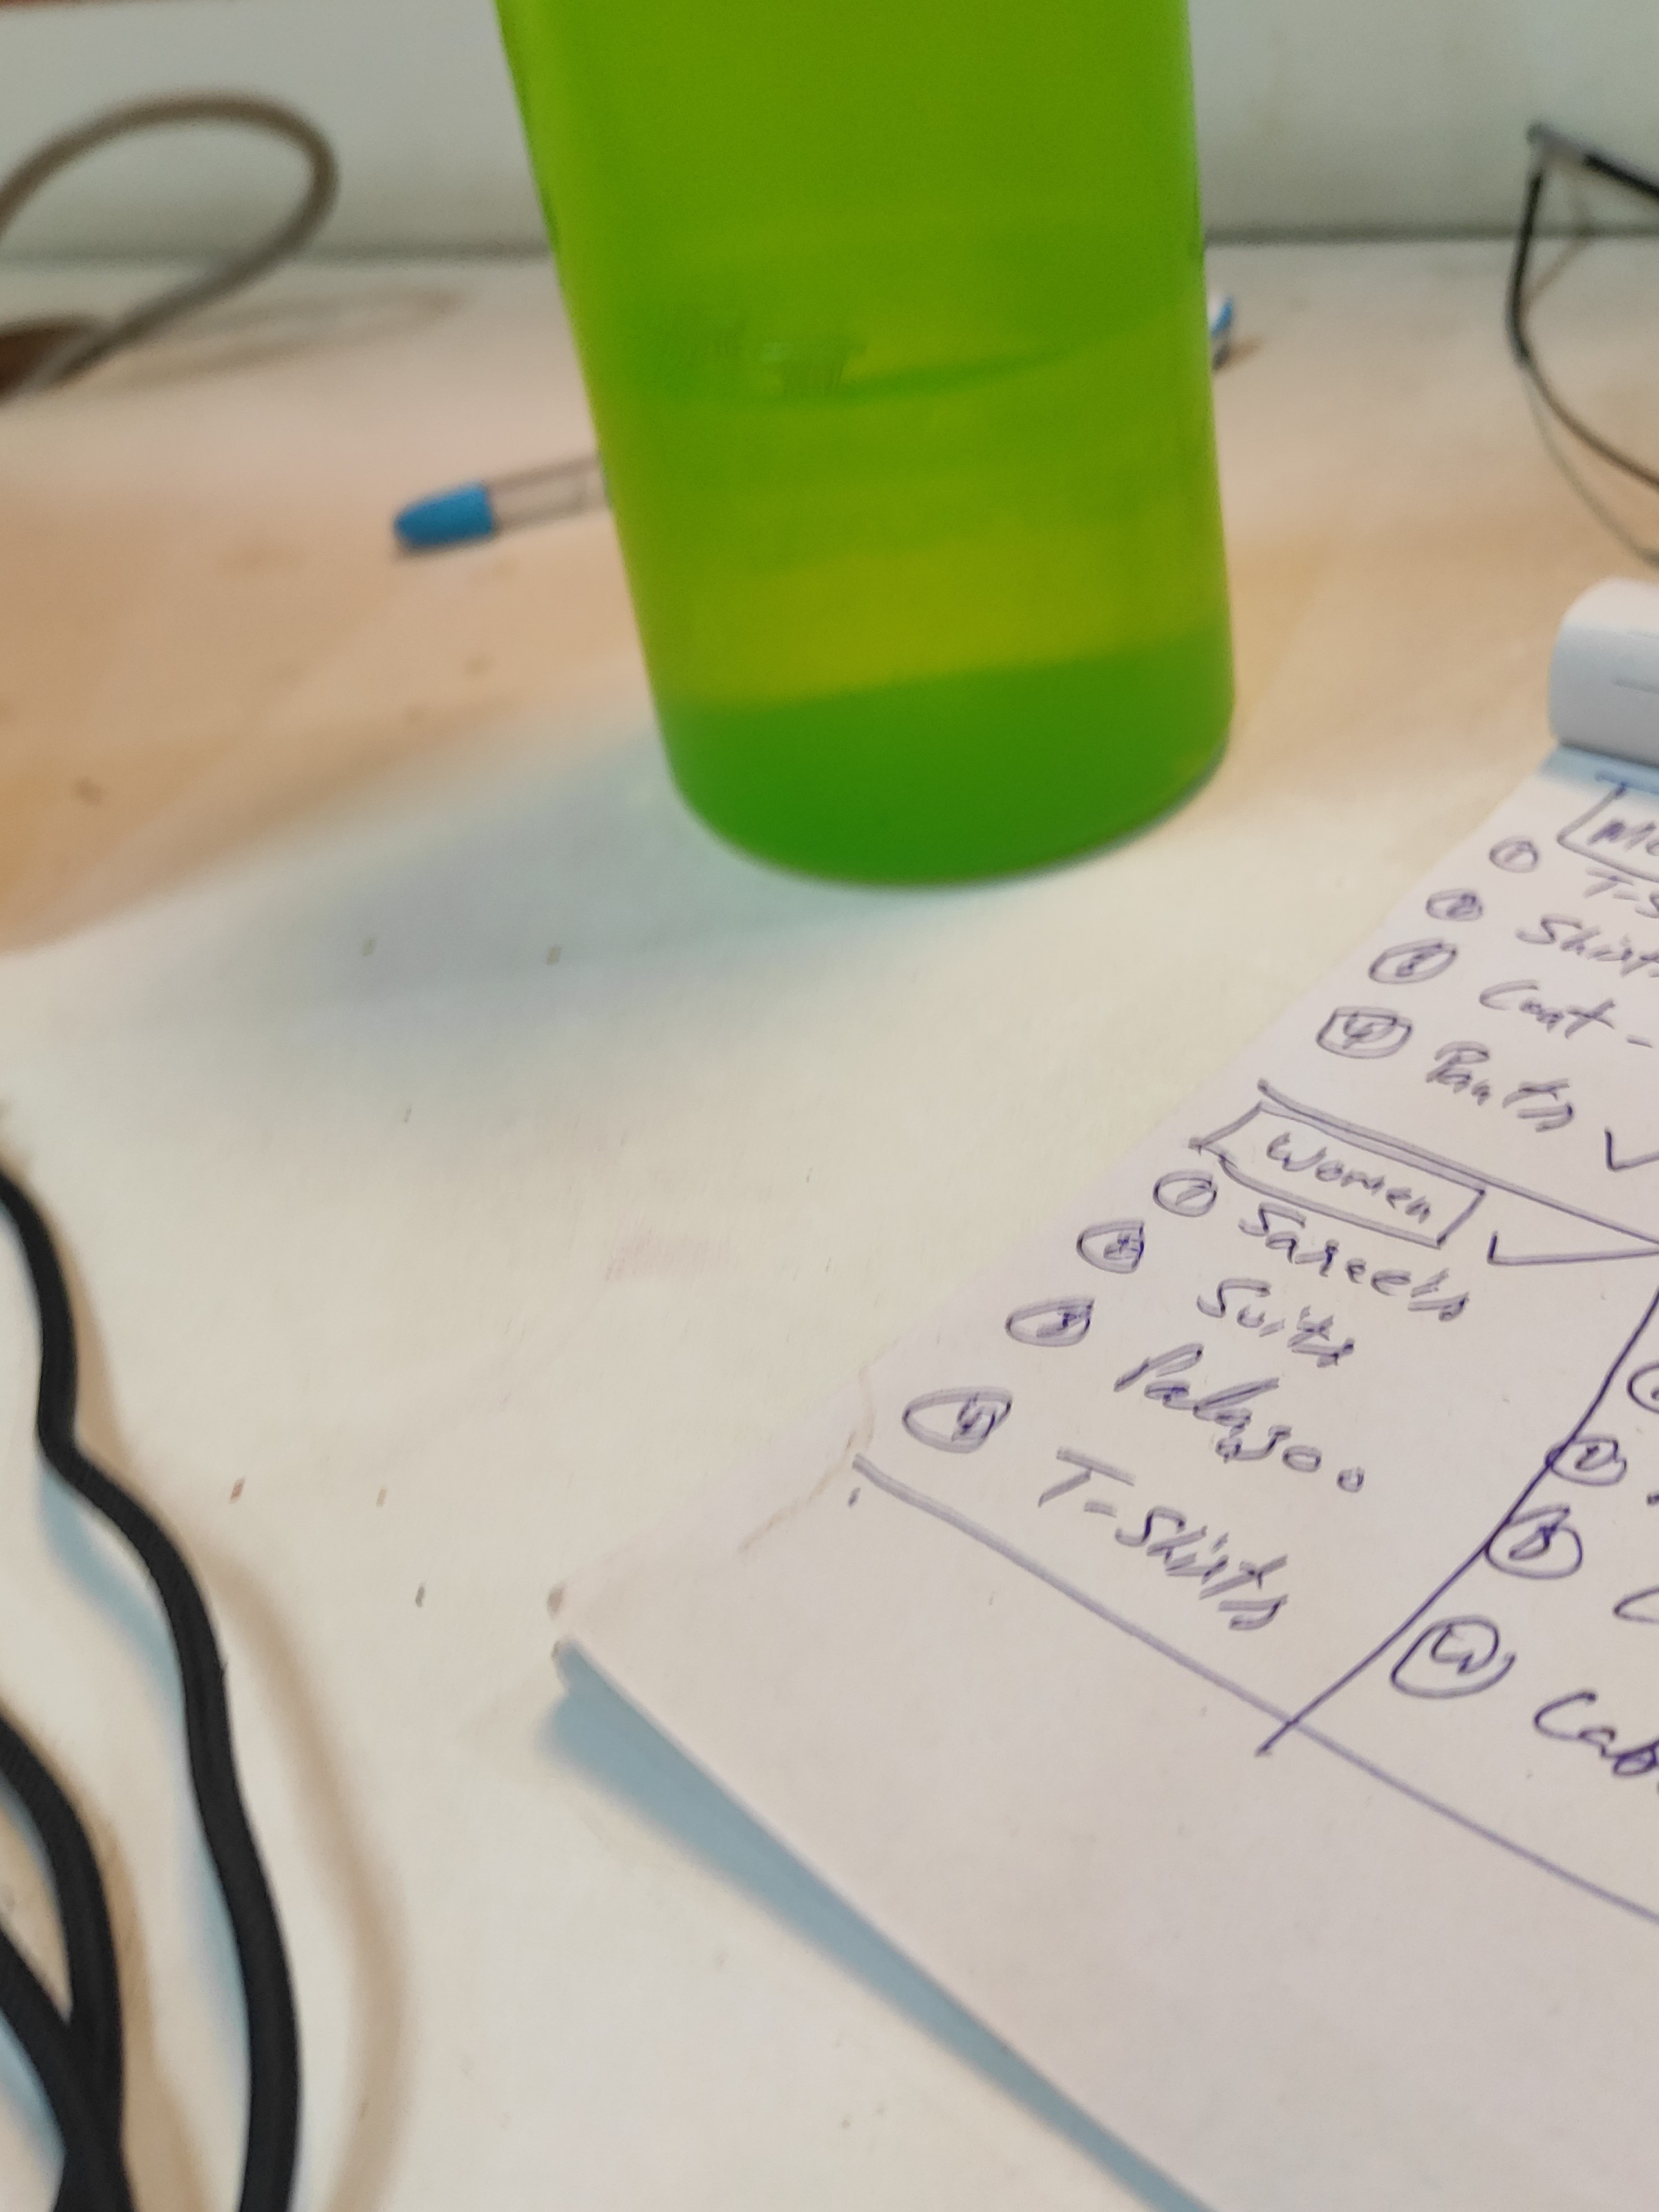 ① T-S
② Shirts
③ Coat -
④ Pants ✓
Women ✓
① Sarees
② Suits
③ Palazoo
④ T-Shirts
②
③
④ Cab